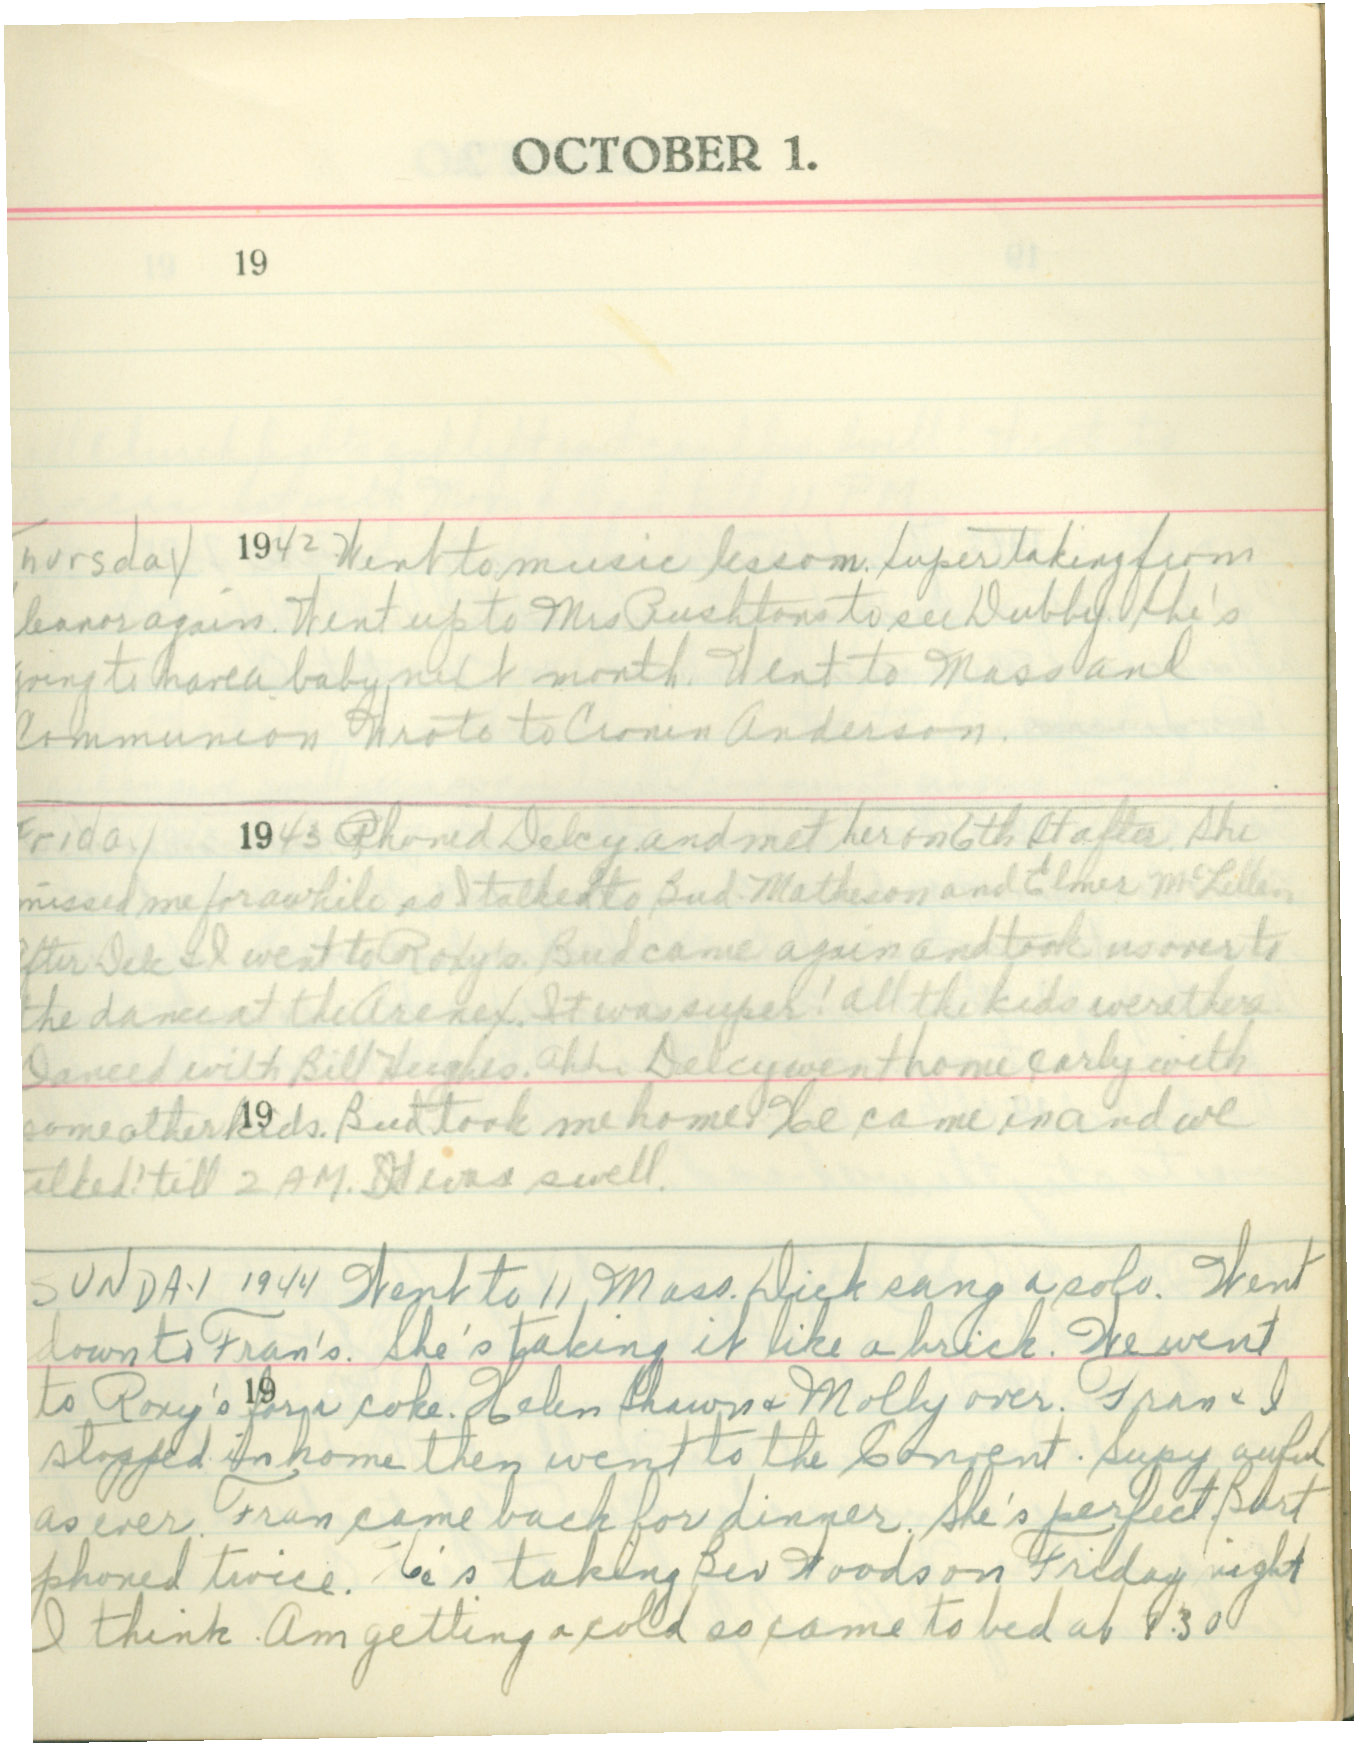 OCTOBER 1.
19
Thursday 1942 Went to music lesson. Super taking from
Eleanor again. Went up to Mrs Rushtons to see Dubby. She's
going to have a baby next month. Went to Mass and
Communion Wrote to Cronin Anderson.
Friday 1943 Phoned Delcy and met her on 6th St after. She
missed me for awhile so I talked to Bud Matheson and Elmer McLellan
After Delc & I went to Roxy's. Bud came again and took us over to
the dance at the Arenex. It was super! All the kids were there.
Danced with Bill Hughes. Ahh. Delcy went home early with
19
some other kids. Bud took me home. He came in and we
talked 'till 2 AM. It was swell.
SUNDAY 1944 Went to 11 Mass. Dick sang a solo. Went
down to Fran's. She's taking it like a brick. We went
19
to Roxy's for a coke. Helen Shawn & Molly over. Fran & I
stopped in home then went to the Convent. Supy awful
as ever. Fran came back for dinner. She's perfect. Bart
phoned twice. He's taking Bev Woods on Friday night
I think. Am getting a cold so came to bed at 9:30